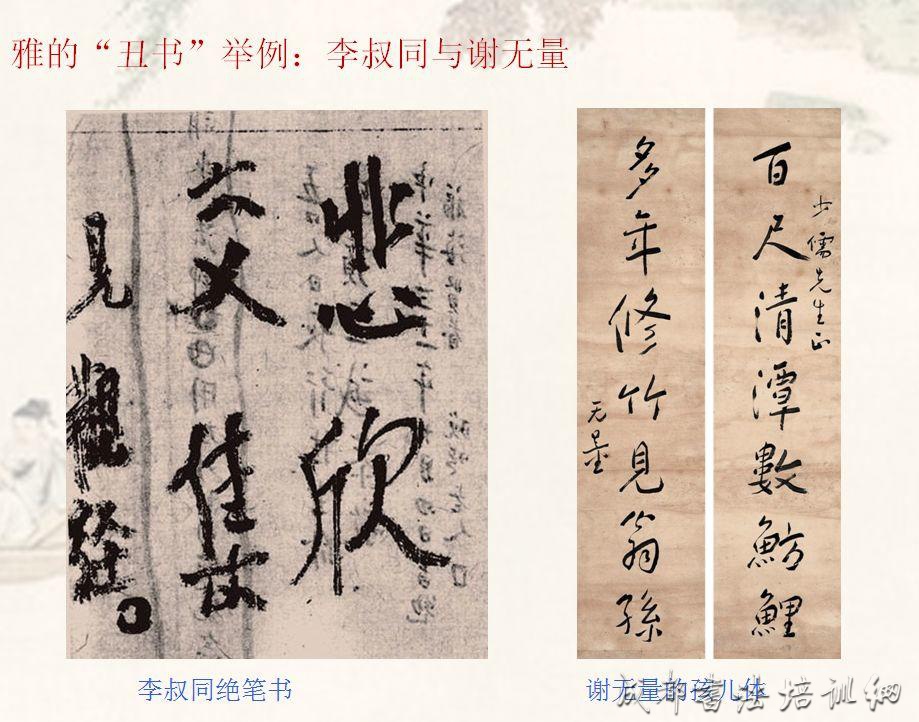 雅的“丑书”举例：李叔同与谢无量
悲欣
交集
見觀經
百尺清潭數魴鯉
少儒先生正
多年修竹見翁孫
无量
李叔同绝笔书
谢无量的孩儿体
成都書法培训网